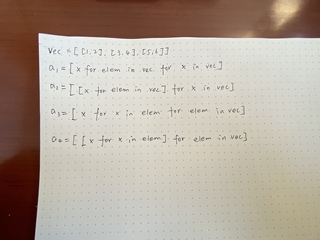 vec = [ [1,2], [3,4], [5,6] ]
a1 = [ x for elem in vec for x in vec ]
a2 = [ [ x for elem in vec ] for x in vec ]
a3 = [ x for x in elem for elem in vec ]
a4 = [ [ x for x in elem ] for elem in vec ]